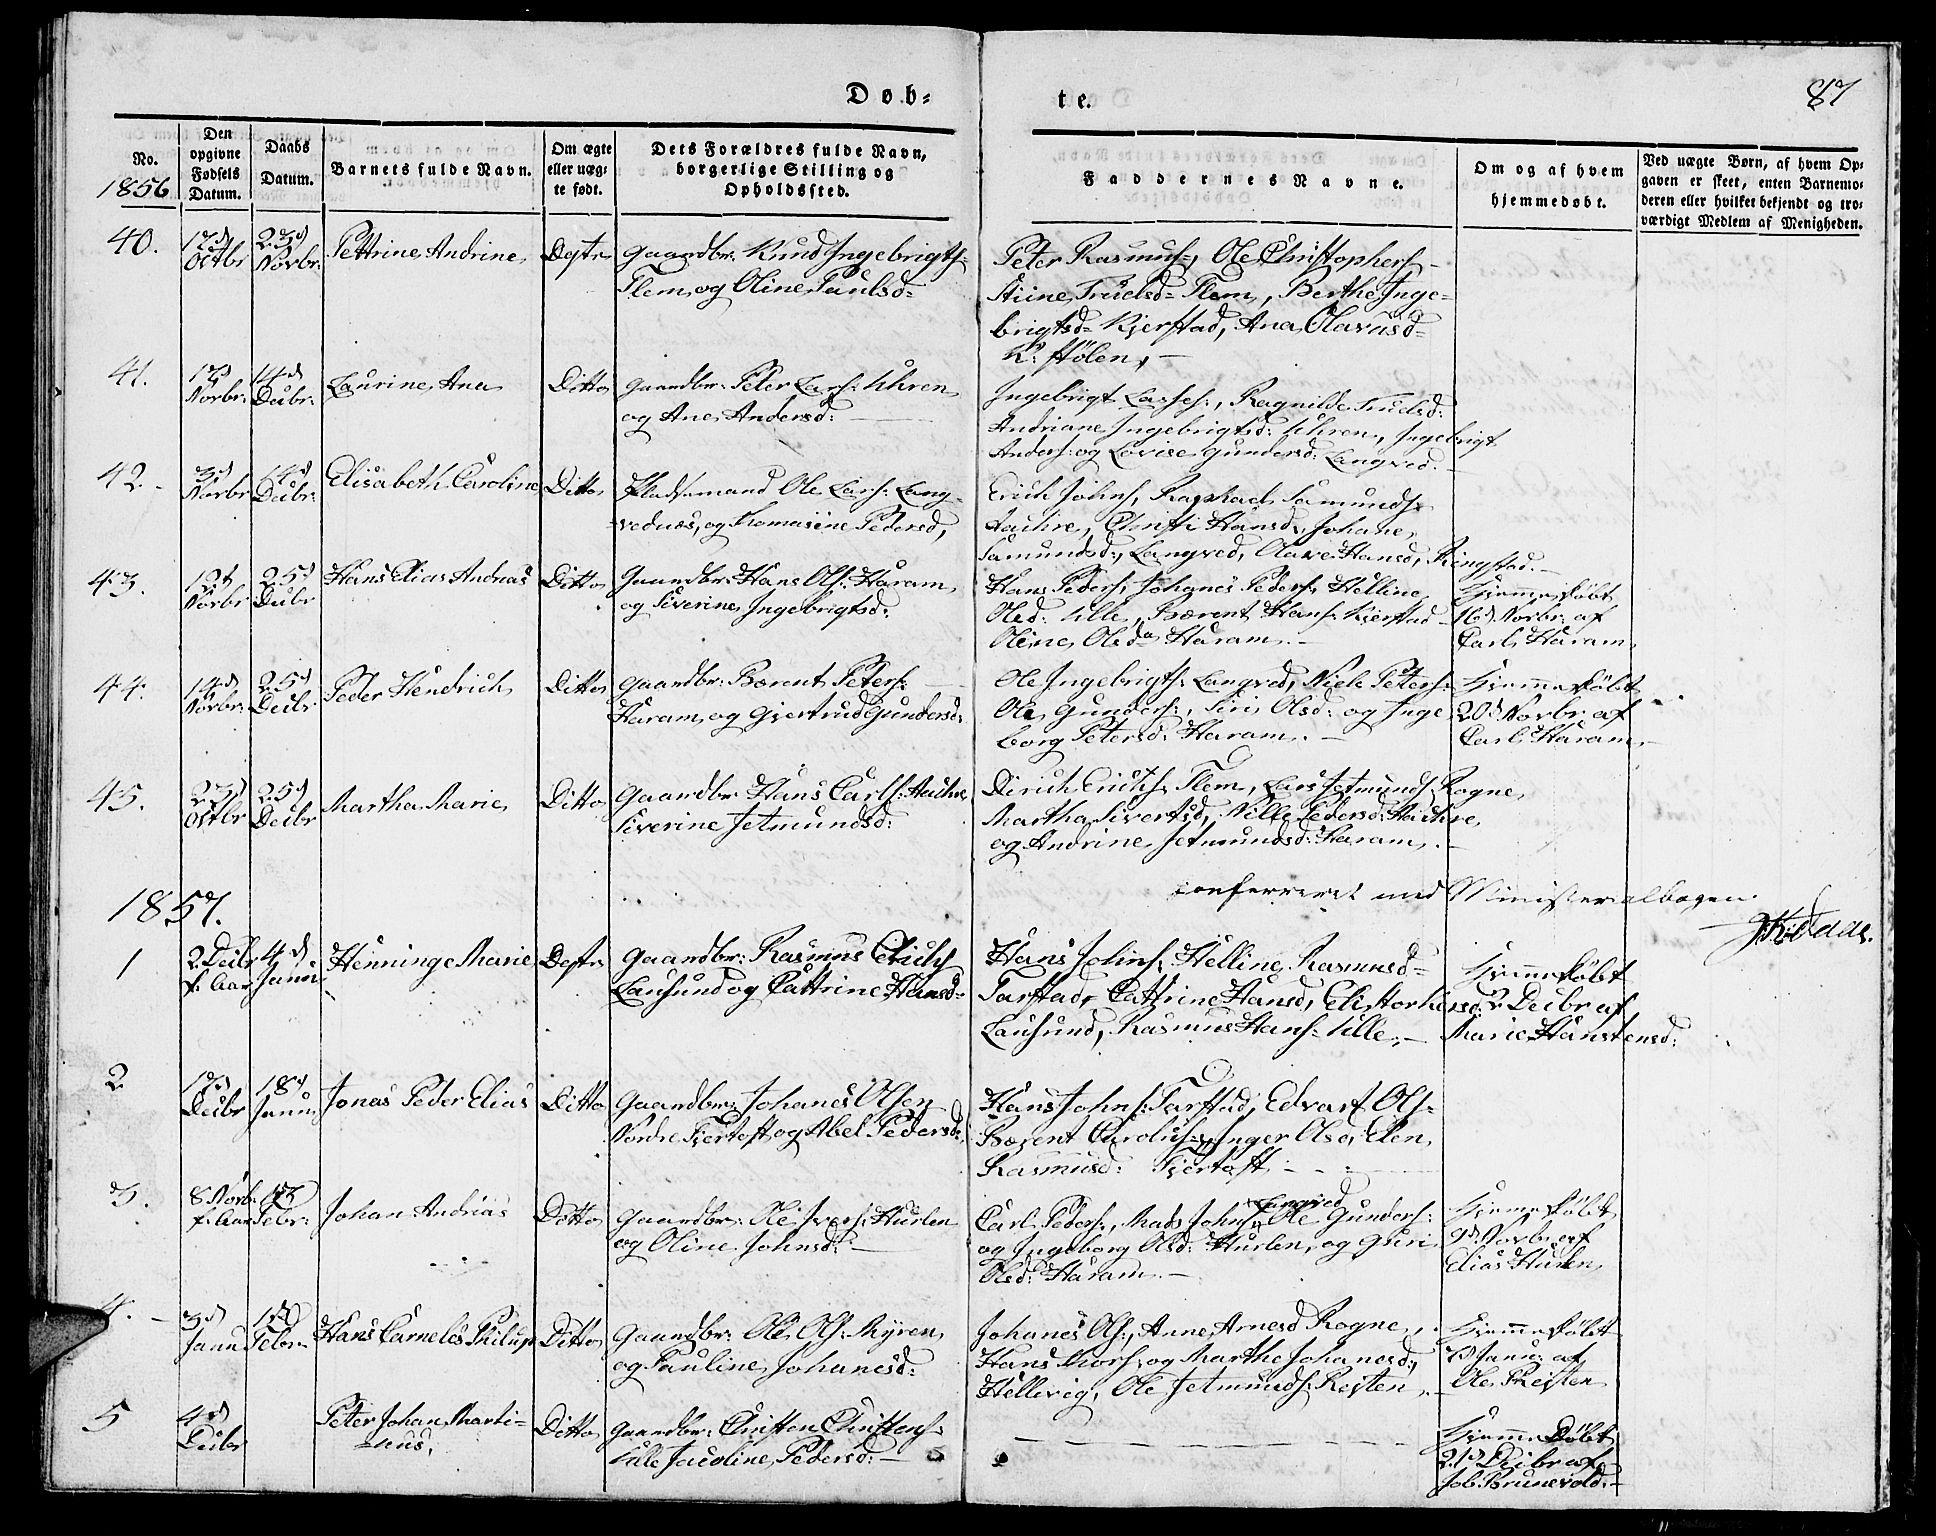 Døb-
te.
87
No.
1856
Den opgivne Fødsels Datum.
Daabs Datum.
Barnets fulde Navn.
Om ægte eller uæg-
te født.
Dets Forældres fulde Navn,
borgerlige Stilling og
Opholdssted.
Faddernes Navne.
Om og af hvem
hjemmedøbt.
Ved uægte Børn, af hvem Op-
gaven er skeet, enten Barnemo-
deren eller hvilket bekjendt og tro-
værdigt Medlem af Menigheden.
40. 17d Octbr 23d Novbr: Pettrine Andrine Ægte Gaardbr: Knud Ingebrigts:
Flem og Oline Paulsd=
Peter Rasmus=, Ole Christophers
Stiine Truelsd= Flem, Berthe Inge-
brigtsd= Kjerstad, Ana Olavusd=
K: stølen, -
41. Novbr: 14d Deibr: Laurine Ana Ditto Gaardbr: Peter Lars: Uhren
og Ane Andersd:
Ingebrigt Lasses:, Ragnilde Truelsd:
Andriane Ingebrigtsd: Uhren, Ingebrigt
Anders: og Lovise Gundersd: Langved. -
42. 3d Novbr 14d Deibr: Elisabeth Caroline Ditto Pladsemand Ole Lars: Lang-
vednæs, og Thomasine Pedersd,
Erich Johns, Raphael Samunds
Hauhre, Christi Hansd, Johane
Samundsd:, Langved, Olave Hansd, Ringstad. -
43. 12t Novbr 25d Deibr Hans Elias Andreas Ditto Gaardbr: Hans Ols: Haram
og Siverine Ingebrigtsd:
Hans Peders, Johanes Peders, Helline
Olsd: Ulle, Bærent Hans: Kjerstad
Oline Olsda Haram. -
Hjemmedøbt
16d Novbr: af
Carl Haram
44. 14d Novbr: 25d Deibr Peder Hendrich Ditto Gaardbr: Bærent Peters:
Haram og Gjertrud Gundersd:
Ole Ingebrigts: Langved, Niels Peters:
Ole Gunders:, Siri Olsd: og Inge-
borg Petersd: Haram. -
Hjemmedøbt
20d Novbr: af
Carl Haram
45. 23d Octbr 25d Deibr Martha Marie Ditto Gaardbr: Hans Carls: Hauhre
Siverine Jetmundsd:
Dirich Erichs Flem, Lars Jetmunds Rogne
Martha Sivertsd, Nille Pedersd: Hauhre
og Andrine Jetmundsd: Haram. -
confereret med Ministerialbogen.
1857.
1 2 Deibr f. Aar 4d Janu: Henninge Marie Ægte Gaardbr: Rasmus Erichs
Lausund og Cattrine Hansd=
Hans Johns, Helline Rasmusd=
Tarstad, Cathrine Hansd, Eli Storkersd:
Lausund, Rasmus Hans: Ulle, -
Hjemmedøbt
2 Deibr af
Marie Hanstensd:
2 17d Deibr 18d Janu: Jonas Peder Elias Ditto Gaardbr: Johanes Olsen
Nordre Fjertoft og Abel Pedersd:
Hans Johns: Tarstad, Edvart Ols=
Bærent Carolus:, Inger Olsd, Elen
Rasmusd: Fjertoft -
3. 8 Novb: f. Aar Febr: Johan Andreas Ditto Gaardbr: Ole Ivers: Hurlen
og Oline Johnsd: -
Carl Peders:, Mads Johns: Langved, Ole Gunders:
og Ingeborg Olsd: Hurlen, og Guri
Olsd: Haram. -
Hjemmedøbt
9d Novbr: af
Elias Hurlen
4. 3d Janu Febr: Hans Carneles Philip Ditto Gaardbr: Ole Ols: Myren
og Pauline Johanesd:
Johanes Ols:, Anne Arnesd Rogne,
Hans Thors: og Marthe Johanesd:,
Hellevig, Ole Jetmunds: Reiten,
Hjemmedøbt
Janu: af
Ole Reiten
5 4d Deibr Peter Johan Marti-
nus. Ditto Gaardbr: Christen Christens:
Ulle Jacoline Pedersd: -
Hjemmedøbt
21d Deibr af
Job. Brunevold. -